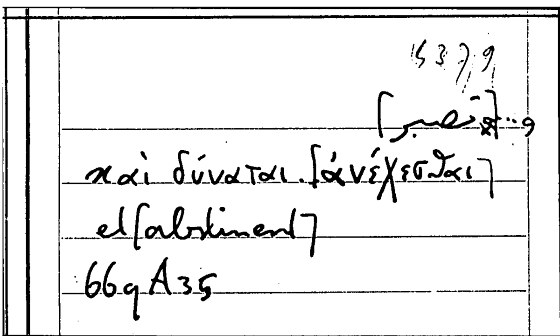 5379
καὶ δύναται. [ἀνέχεσθαι]
et [abstinent]
669 A35